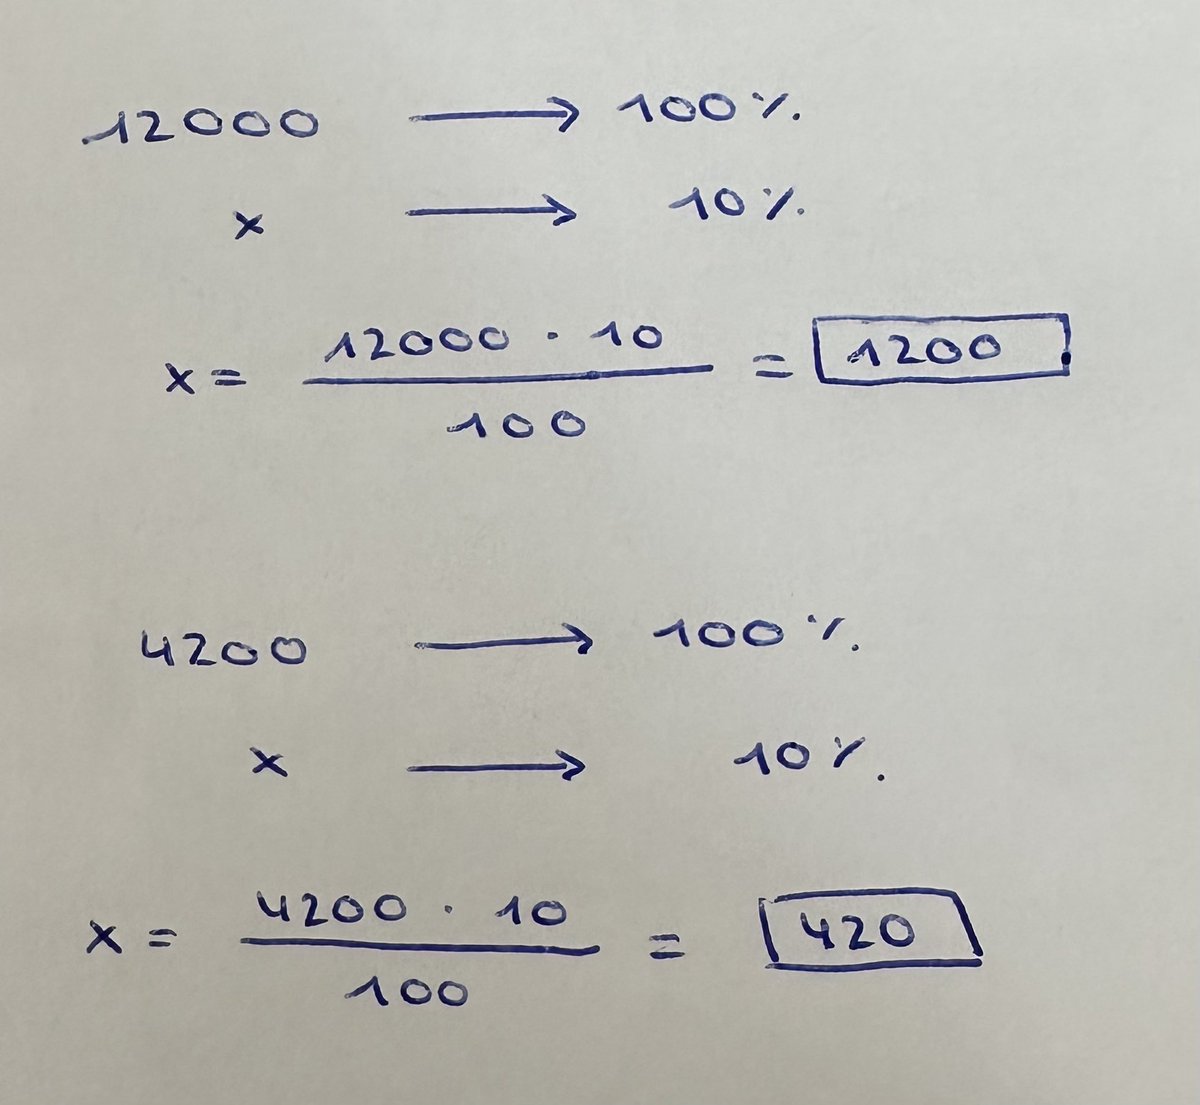 12000 → 100%
x → 10%
x = 12000 · 10 / 100 = 1200
4200 → 100%
x → 10%
x = 4200 · 10 / 100 = 420